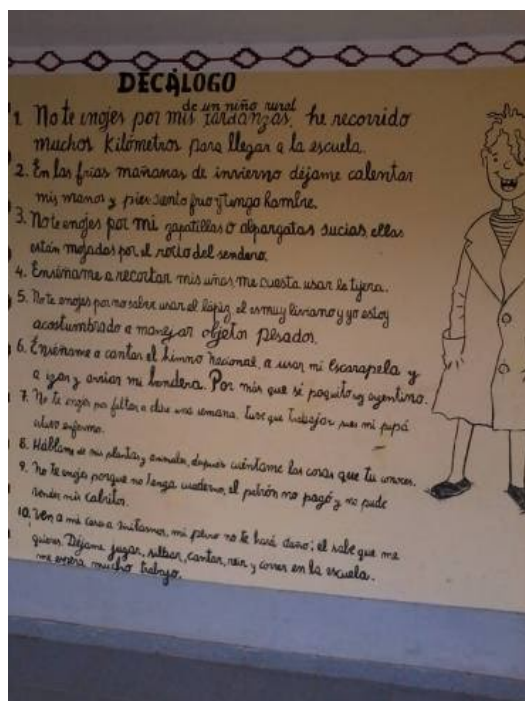 DECÁLOGO
de un niño rural
1 No te enojes por mis tardanzas, he recorrido
muchos kilómetros para llegar a la escuela.
2. En las frias mañanas de invierno déjame calentar
mis manos y pies siento frio y tengo hambre.
3. No te enojes por mi zapatillas o alpargatas sucias, ellas
están mojadas por el rocio del sendero.
4. Enséñame a recortar mis uñas me cuesta usar la tijera.
5. No te enojes por no saber usar el lápiz, el es muy liviano y yo estoy
acostumbrado a manejar objetos pesados.
6. Enséñame a cantar el himno nacional, a usar mi escarapela y
a izar y arriar mi bandera. Por más que sé poquito soy argentino.
7. No te enojes por faltar a clase una semana, tuve que trabajar pues mi papá
estuvo enfermo.
8. Háblame de mis plantas y animales, después cuéntame las cosas que tu conoces.
9. No te enojes porque no tenga cuaderno, el patrón no pagó y no pude
vender mis cabritos.
10. Ven a mi casa a visitarnos, mi perro no te hará daño; él sabe que me
quieres. Déjame jugar, silbar, cantar, reir y correr en la escuela.
me espera mucho trabajo.